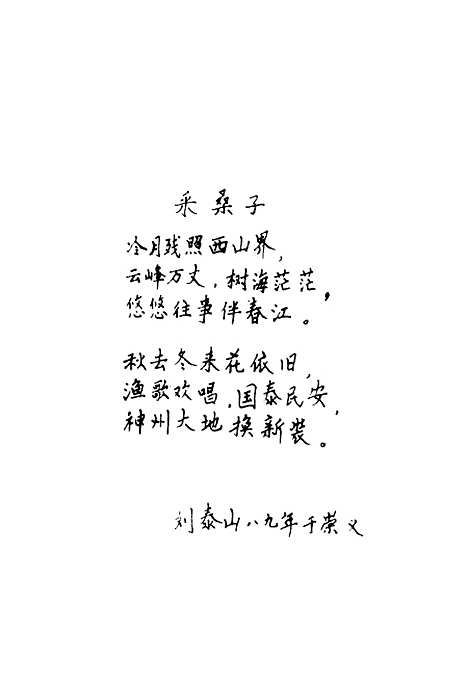 采桑子
冷月残照西山界,
云峰万丈,树海茫茫,
悠悠往事伴春江。
秋去冬来花依旧,
渔歌欢唱,国泰民安,
神州大地换新装。
刘泰山八九年于荣义